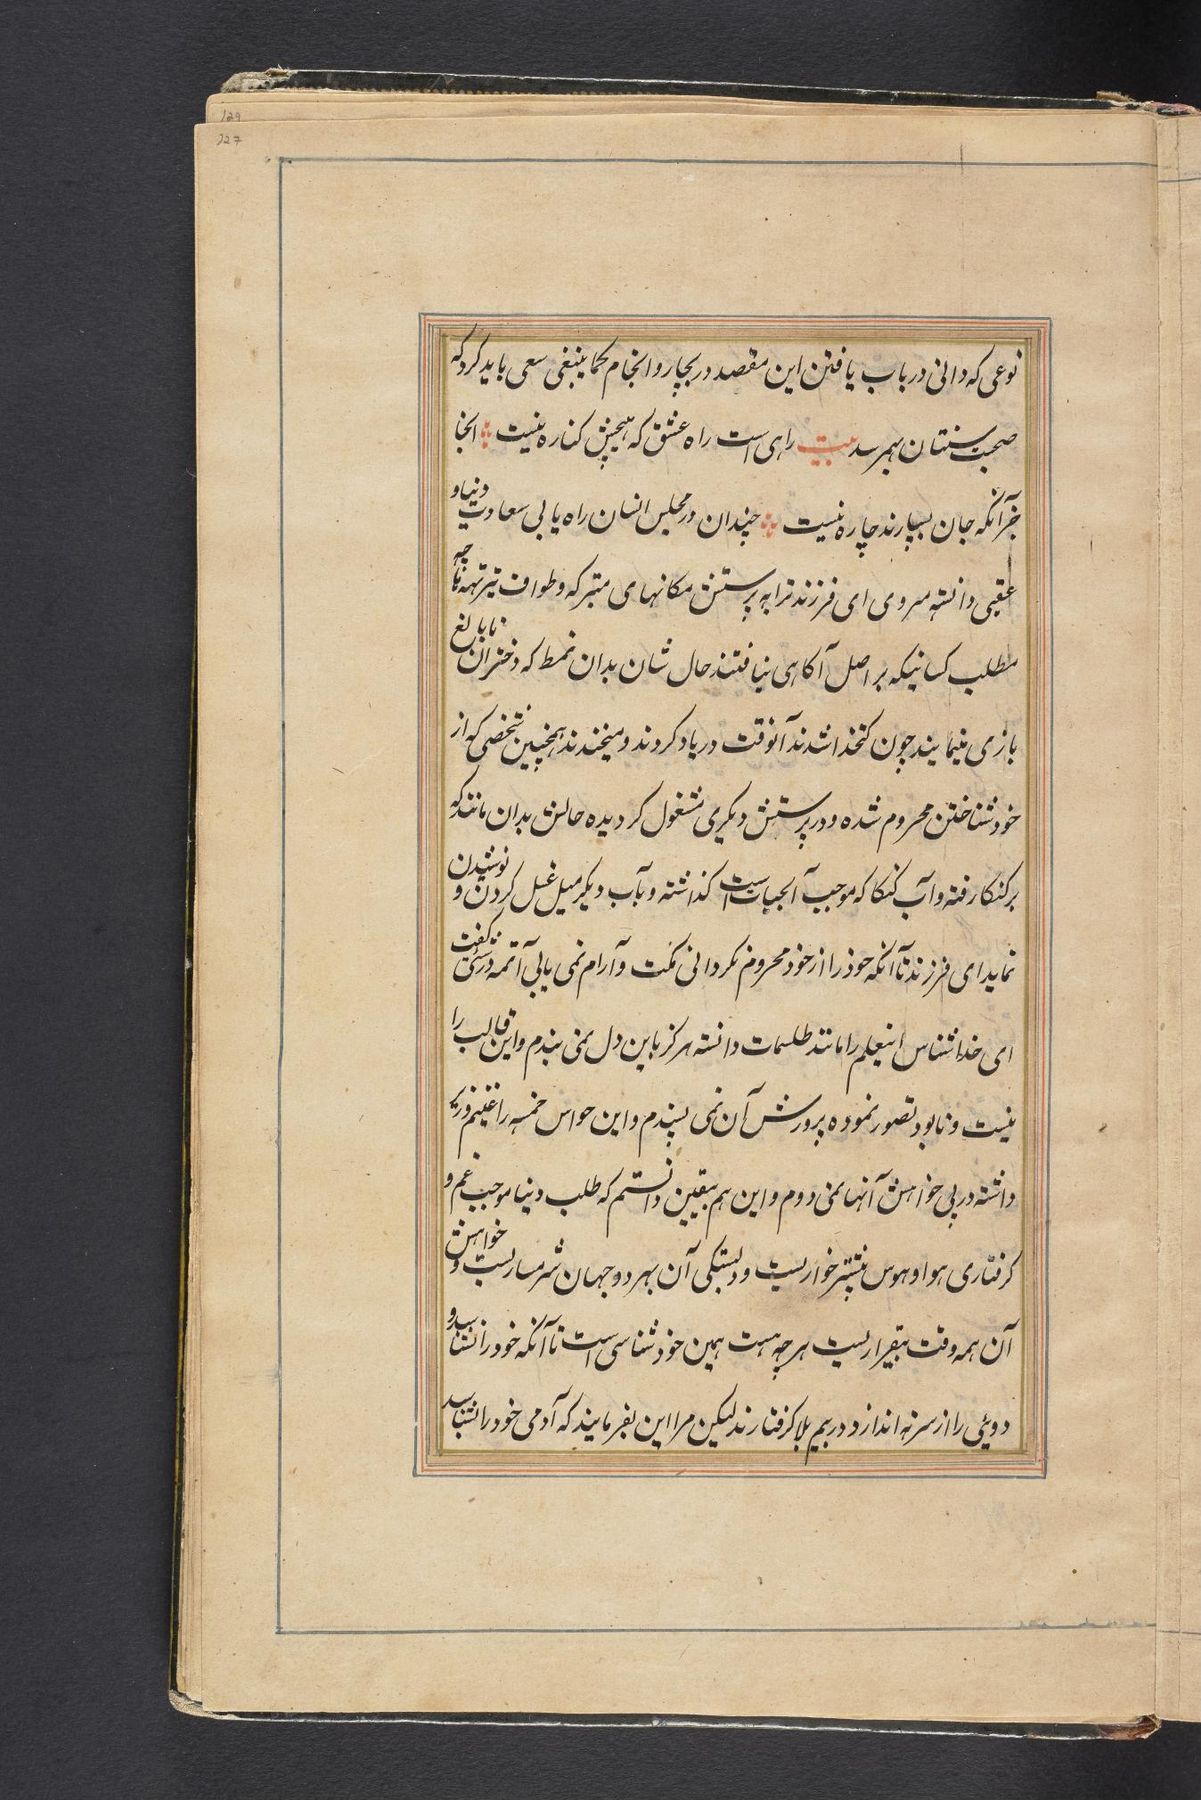 129
127
نوعی که دانی در باب یافتن این مقصد در بچار و انجام کماینبغی سعی باید کرد که
صحبت سنتان بهم رسد بیت راهی است راه عشق که هیچش کناره نیست انجا
جز آنکه جان بسپارند چاره نیست چندان در مجلس انسان راه یابی سعادت دنیا و
عقبی دانسته میروی ای فرزند ترا به پرستش مکانهای متبرکه و طواف تیرتهه ها چه
مطلب کسانیکه بر اصل آکاهی نیافتند حال شان بدان نمط که دختران نابالغ
بازی مینمایند چون کتخدا شدند آنوقت در یاد کردند و میخندند همچنین شخصی که از
خود شناختن محروم شده و در پرستش دیکری مشغول کردیده حالش بدان مانند که
بر کنکا رفته و آب کنکا که موجب آبحیات است کذاشته و بآب دیکر میل غسل کردن و نوشیدن
نماید ای فرزند تا آنکه خود را از خود محروم نکردانی مکت و آرام نمی یابی آتمه درشی کفت
ای خدا شناس اینعلم را مانند طلسمات دانسته هرکز باین دل نمی بندم و این قالب را
نیست و نابود تصور نموده پرورش آن نمی پسندم و این حواس خمسه را غنیم
داشته در پی خواهش آنها نمی دوم و این هم بیقین دانستم که طلب دنیا موجب غم و
کرفتاری هوا و هوس بیشتر خواریست و دلبستکی آن بهر دو جهان شرمساریست و خواهش
آن همه وقت بیقراریست هر چه هست همین خود شناسی است تا آنکه خود را نشناسد و
دویی را از سر نه اندازد در بیم بلا کرفتارند لیکن مرا این بفرمایند که آدمی خود را نشناسد